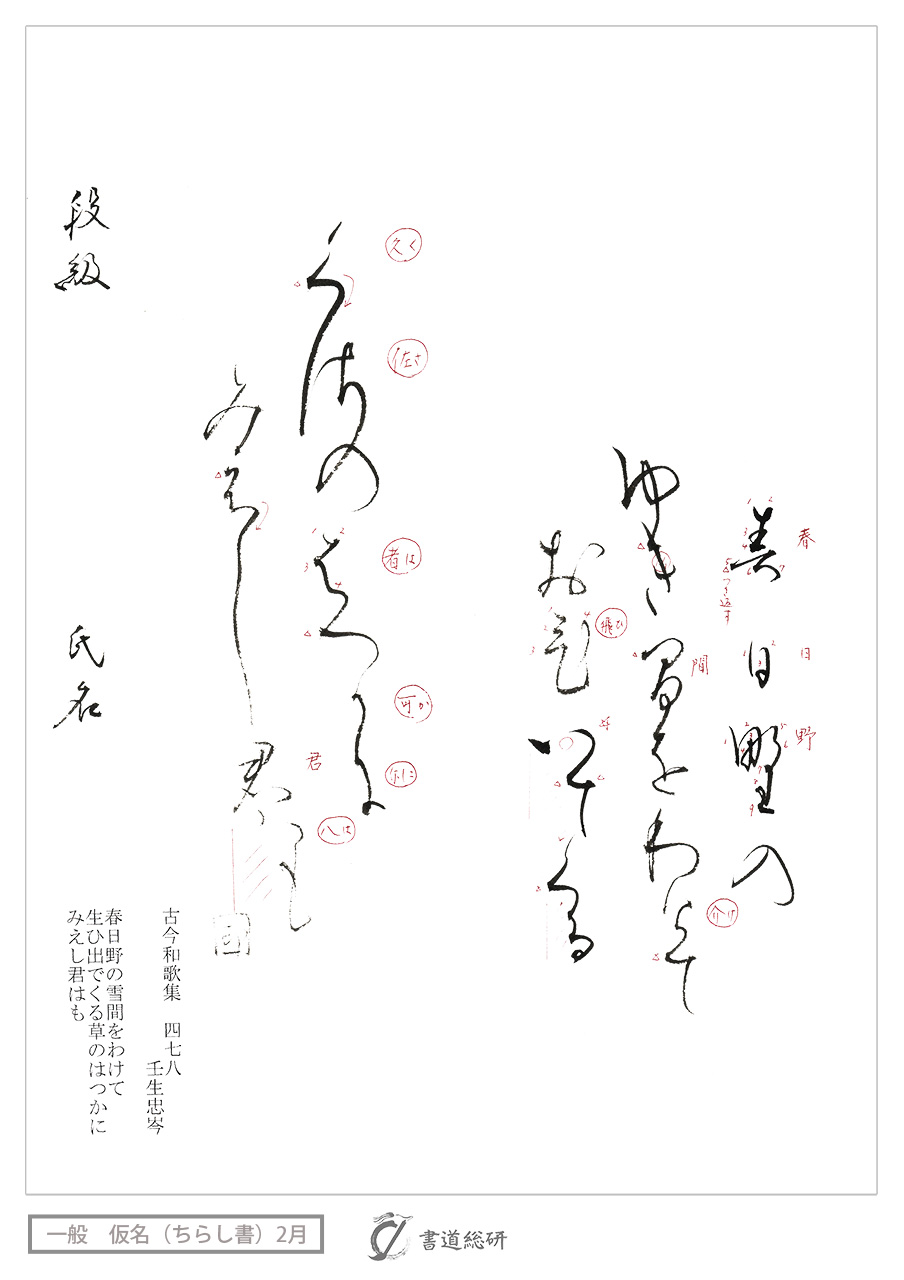 春日野の
ゆき間をわけて
おひいでくる
くさのはつかに
みえし
君はも
春
日
野
つき返す
間
介け
飛ひ
出
久く
佐さ
者は
可か
尓に
君
八は
段級
氏名
古今和歌集 四七八
壬生忠岑
春日野の雪間をわけて
生ひ出でくる草のはつかに
みえし君はも
一般 仮名（ちらし書）2月
書道総研